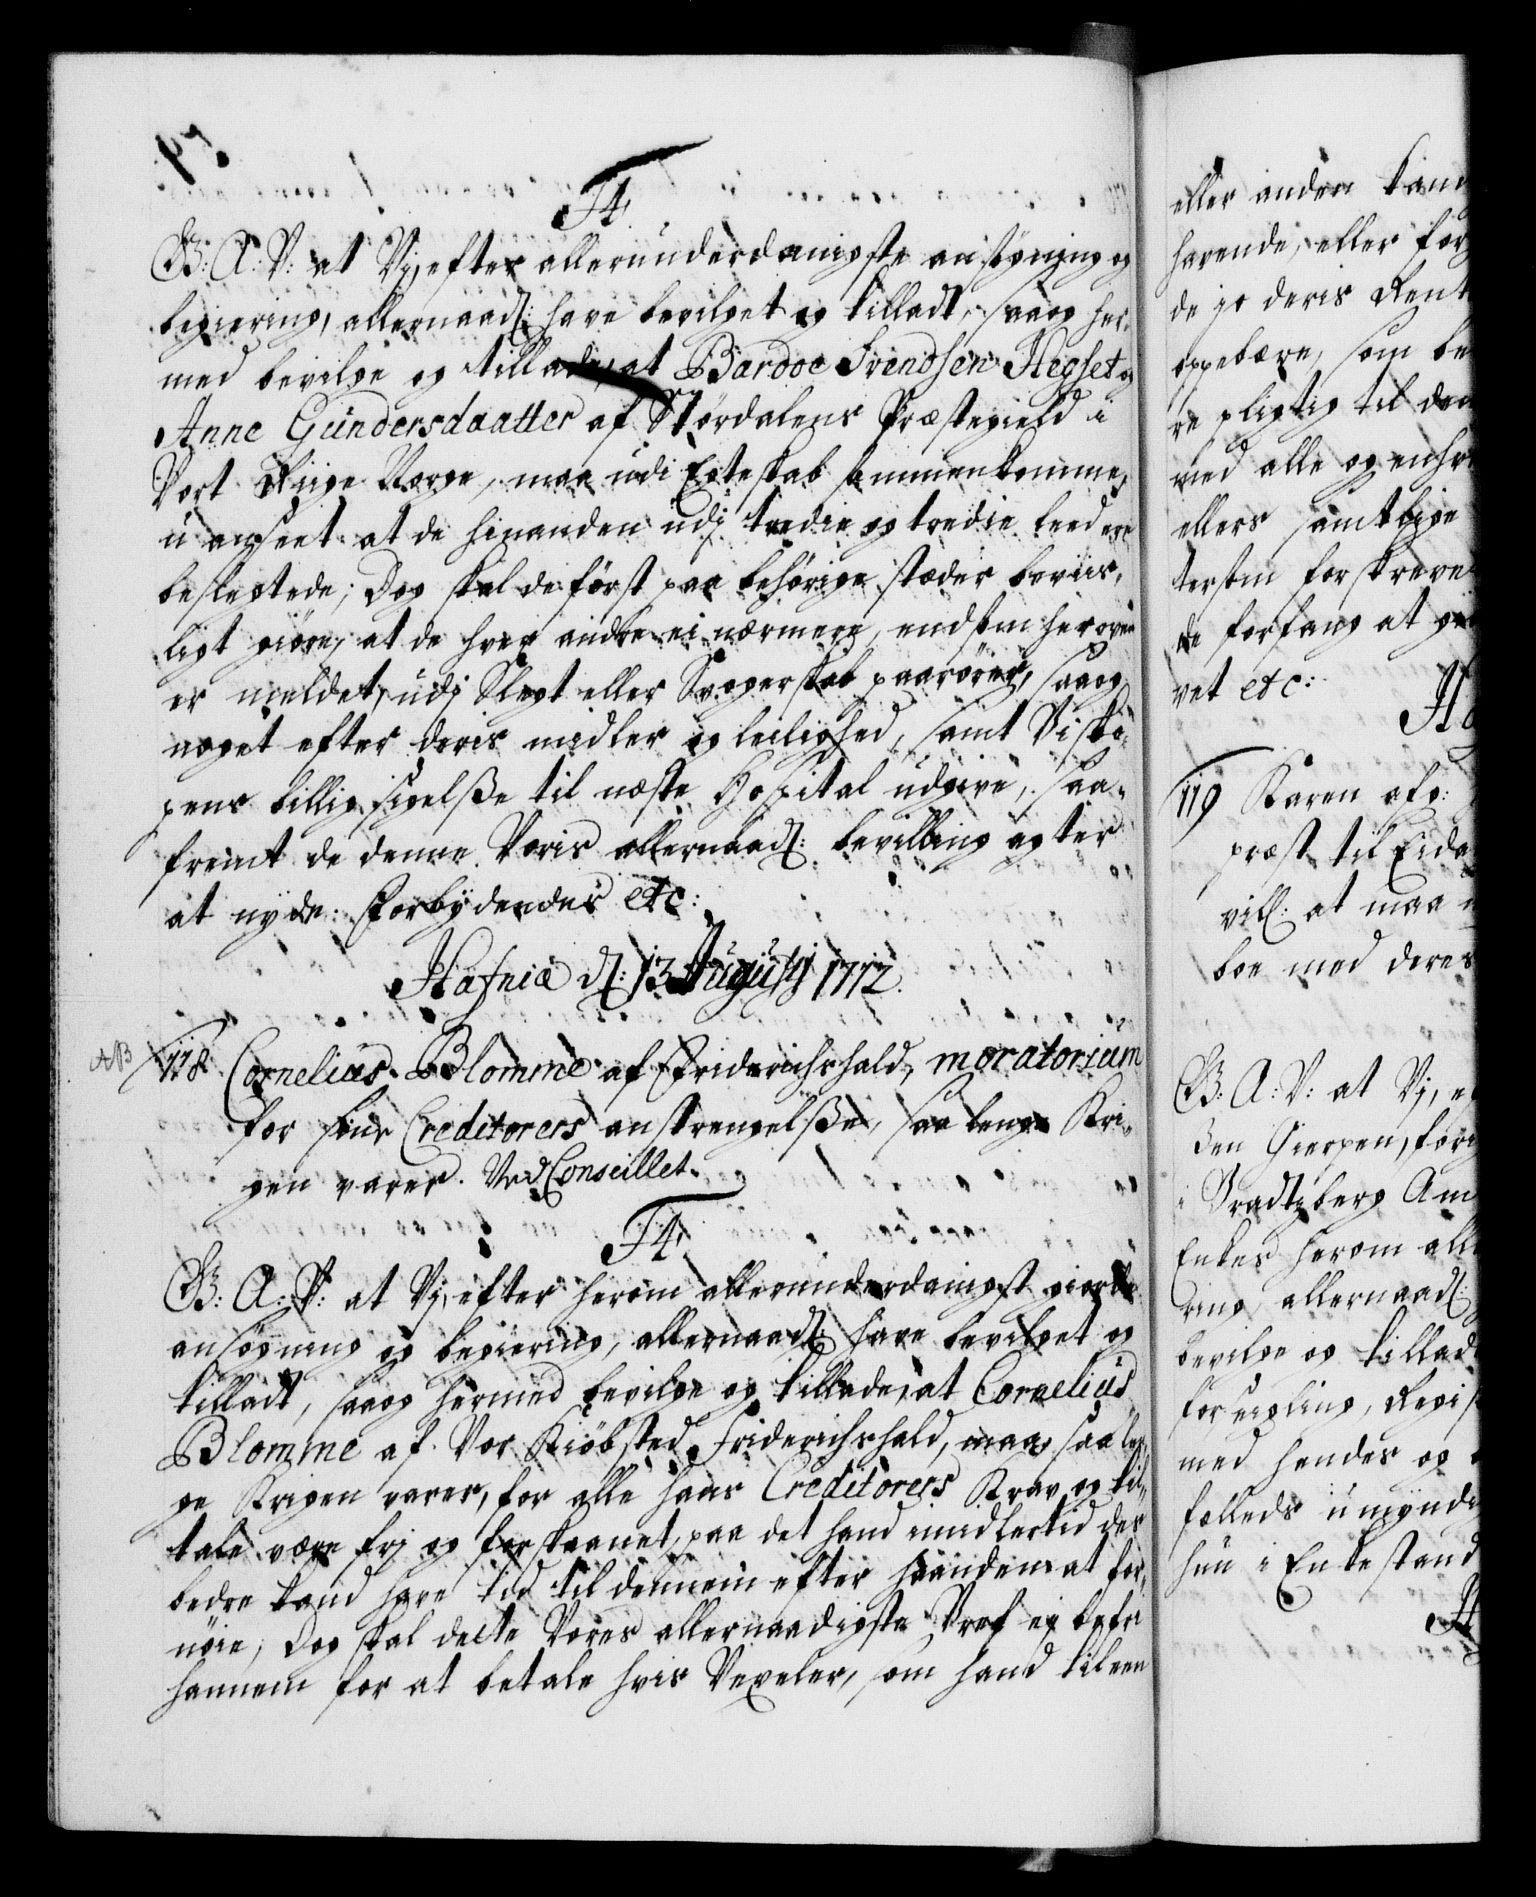 F4
G: A: V: at Vj, efter allerunderdanigste ansøgning og
begiering, allernaadl: have bevilget og tilladt, saaog her-
med bevilge og tillade, at Bardoe Svendsen Hegset og
Anne Gundersdaatter af Størdalens Præstegield i
Vort Riige Norge, maa udi Egteskab sammenkomme,
u anseet at de hinanden udj tredie og tredie leed ere
beslegtede; Dog skal de først paa behørige stæder beviis-
ligt giøre, at de hver andre ei nærmere, end som herover
er meldet, udj Slegt eller Svogerskab paarører, saaog
noget efter deris midler og leilighed, samt Bisko-
pens billig sigelsse til næste Hospital udgive, saa-
fremt de denne Voris allernaadl: bevilling agter
at nyde: Forbydendes etc:
Hafniæ d: 13 Augustj 1712.
AB 118. Cornelius Blomme af Friderichshald, moratorium
for sine Creditorers anstrengelsse, saa lenge Kri-
gen varer. Ved Conseillet.
F4.
G: A: V: at Vj, efter herom allerunderdanigst giorde
ansøgning og begiering, allernaadl: have bevilget og
tilladt, saaog hermed bevilge og tillade, at Cornelius
Blomme af Vor Kiøbsted Friderichshald, maa, saa len-
ge Krigen varer, for alle hans Creditorers Krav og til-
tale være frj og forskaanet, paa det hand imidlertid des
bedre kand have tid til dennem efter haanden at for-
nøie; Dog skal dette Vores allernaadigste Bref ej befri
hannem for at betale hvis Vexeler, som hand til een
eller anden kand
havende, eller for
de jo deris Rent
oppebære, som be
re pligtig til den
med alle og enhv
ellers samtlige
tersom forskreve
de forfang at gi
vet etc:
119 Karen afg:
præst til Eida
vill: at maa
boe med deres
G: A: V: at Vj, ef
den Gierpen, for
i Bradtzberg Am
Enkes herom all
ring, allernaadl:
bevilge og tillad
forseigling, Regis
med hendes og
fælleds umyndi
hun i Enkestand